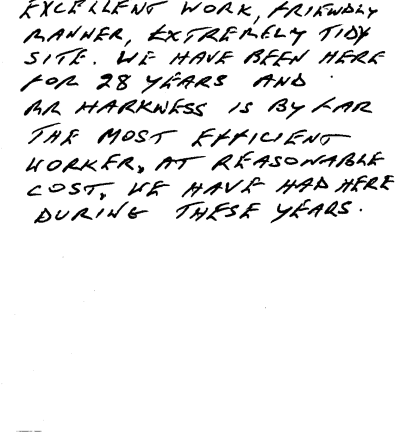 EXCELLENT WORK, FRIENDLY
MANNER, EXTREMELY TIDY
SITE. WE HAVE BEEN HERE
FOR 28 YEARS AND
MR HARKNESS IS BY FAR
THE MOST EFFICIENT
WORKER, AT REASONABLE
COST, WE HAVE HAD HERE
DURING THESE YEARS.